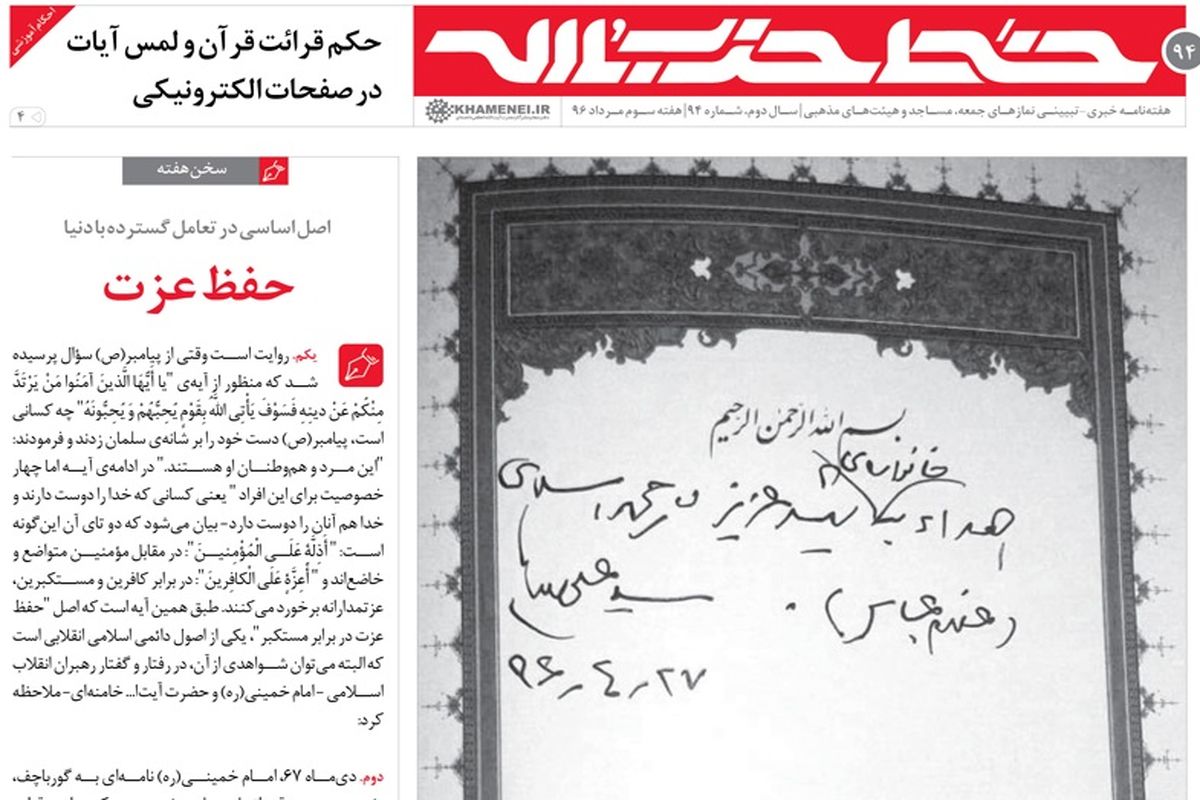 خط حزب‌الله
۹۴
هفته‌نامه خبری-تبیینی نمازهای جمعه، مساجد و هیئت‌های مذهبی | سال دوم، شماره ۹۴ | هفته سوم مرداد ۹۶
KHAMENEI.IR
احکام آموزشی
حکم قرائت قرآن و لمس آیات
در صفحات الکترونیکی
۴
سخن هفته
اصل اساسی در تعامل گسترده با دنیا
حفظ عزت
یکم. روایت است وقتی از پیامبر(ص) سؤال پرسیده
شد که منظور از آیه‌ی "یا أَیُّهَا الَّذینَ آمَنُوا مَنْ یَرْتَدَّ
مِنْکُمْ عَنْ دینِهِ فَسَوْفَ یَأْتِی اللَّهُ بِقَوْمٍ یُحِبُّهُمْ وَ یُحِبُّونَهُ" چه کسانی
است، پیامبر(ص) دست خود را بر شانه‌ی سلمان زدند و فرمودند:
"این مرد و هم‌وطنان او هستند." در ادامه‌ی آیه اما چهار
خصوصیت برای این افراد " یعنی کسانی که خدا را دوست دارند و
خدا هم آنان را دوست دارد- بیان می‌شود که دو تای آن این‌گونه
است: " أَذِلَّةٍ عَلَی الْمُؤْمِنینَ": در مقابل مؤمنین متواضع و
خاضع‌اند و " أَعِزَّةٍ عَلَی الْکافِرینَ": در برابر کافرین و مستکبرین،
عزتمدارانه برخورد می‌کنند. طبق همین آیه است که اصل "حفظ
عزت در برابر مستکبر"، یکی از اصول دائمی اسلامی انقلابی است
که البته می‌توان شواهدی از آن، در رفتار و گفتار رهبران انقلاب
اسلامی -امام خمینی(ره) و حضرت آیت‌ا... خامنه‌ای- ملاحظه
کرد:
دوم. دی‌ماه ۶۷، امام خمینی(ره) نامه‌ای به گورباچف،
بسم الله الرحمن الرحیم
خانواده‌ی
اهداء به شهید عزیز
۹۶٫۴٫۲۷